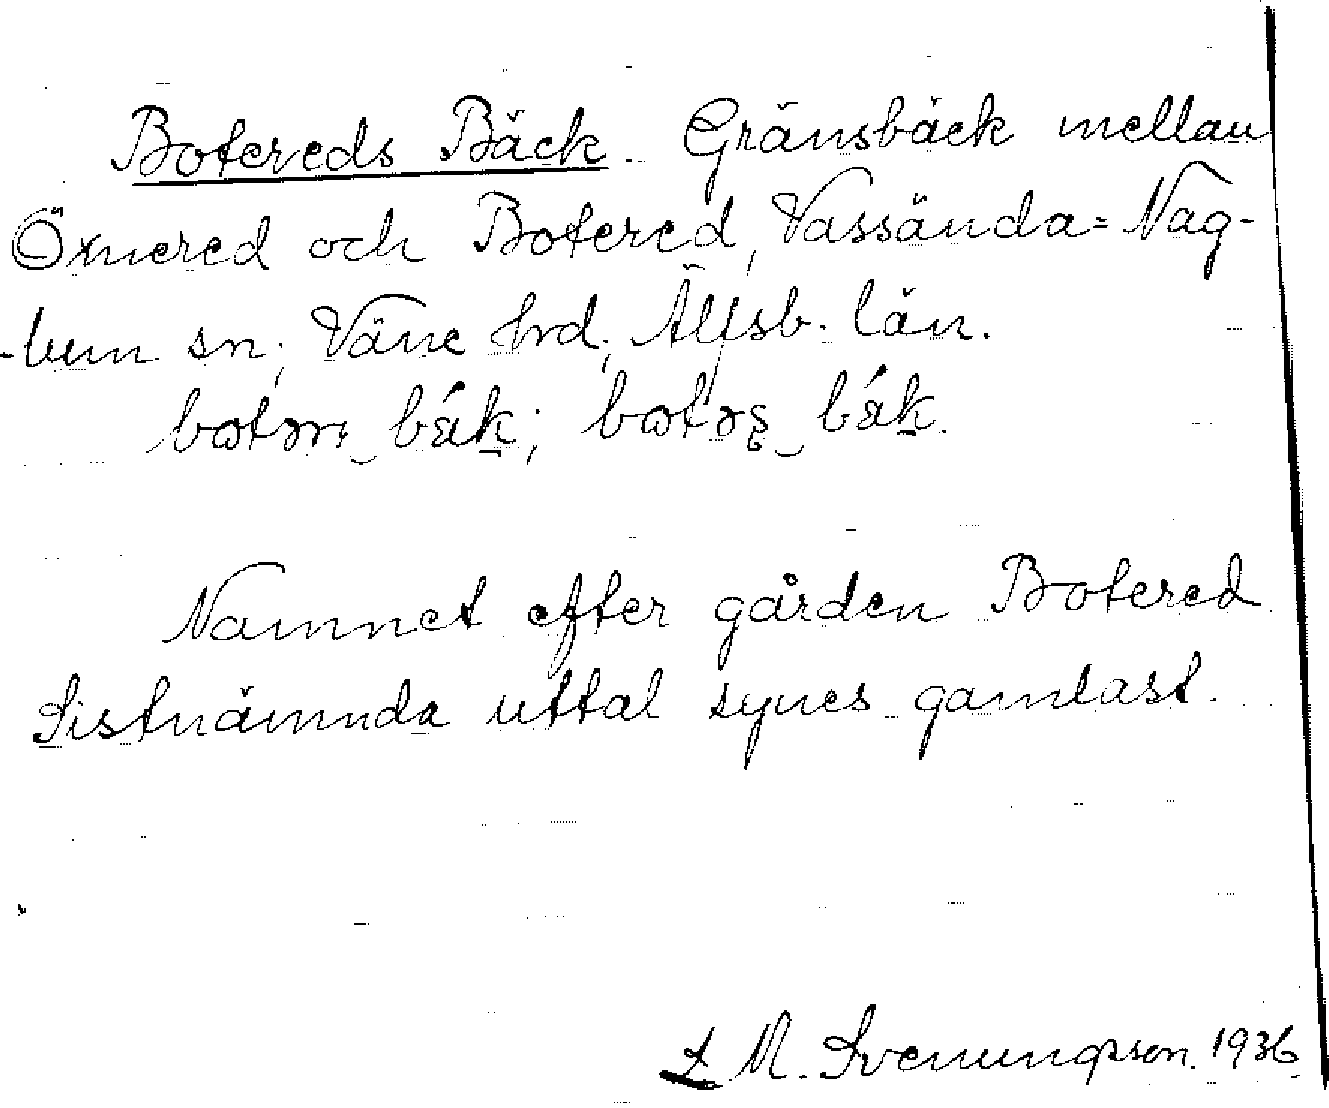 Botereds Bäck. Gränsbäck mellan
Öxnered och Botered, Vassända=Nag-
-lum sn, Väne hrd, Älfsb. län.
Namnet efter gården Botered.
Sistnämnda uttal synes gamlast.
M. Svenungsson. 1936